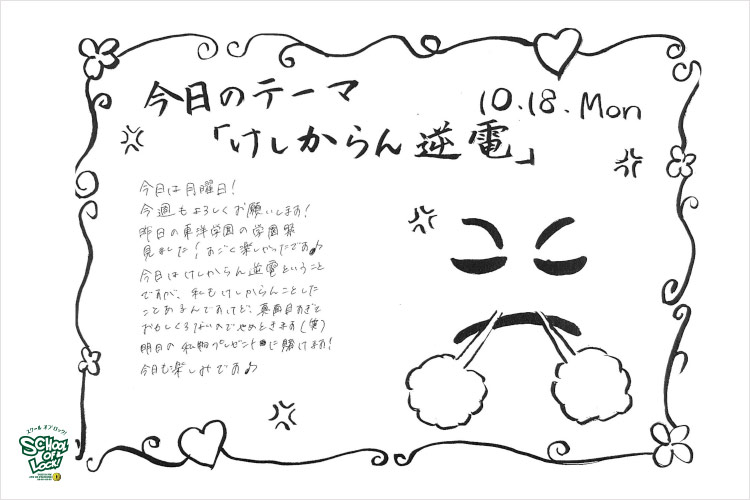 今日のテーマ
10.18.Mon
「けしからん逆電」
今日は月曜日!
今週もよろしくお願いします!
昨日の東洋学園の学園祭
見ました!すごく楽しかったです♪
今日はけしからん逆電ということ
ですが、私もけしからんことした
ことあるんですけど、真面目すぎて
おもしくろないのでやめときます(笑)
明日の私物プレゼントに賭けます!
今日も楽しみです♪
スクール オブ ロック!
SCHOOL
OF
LOCK!